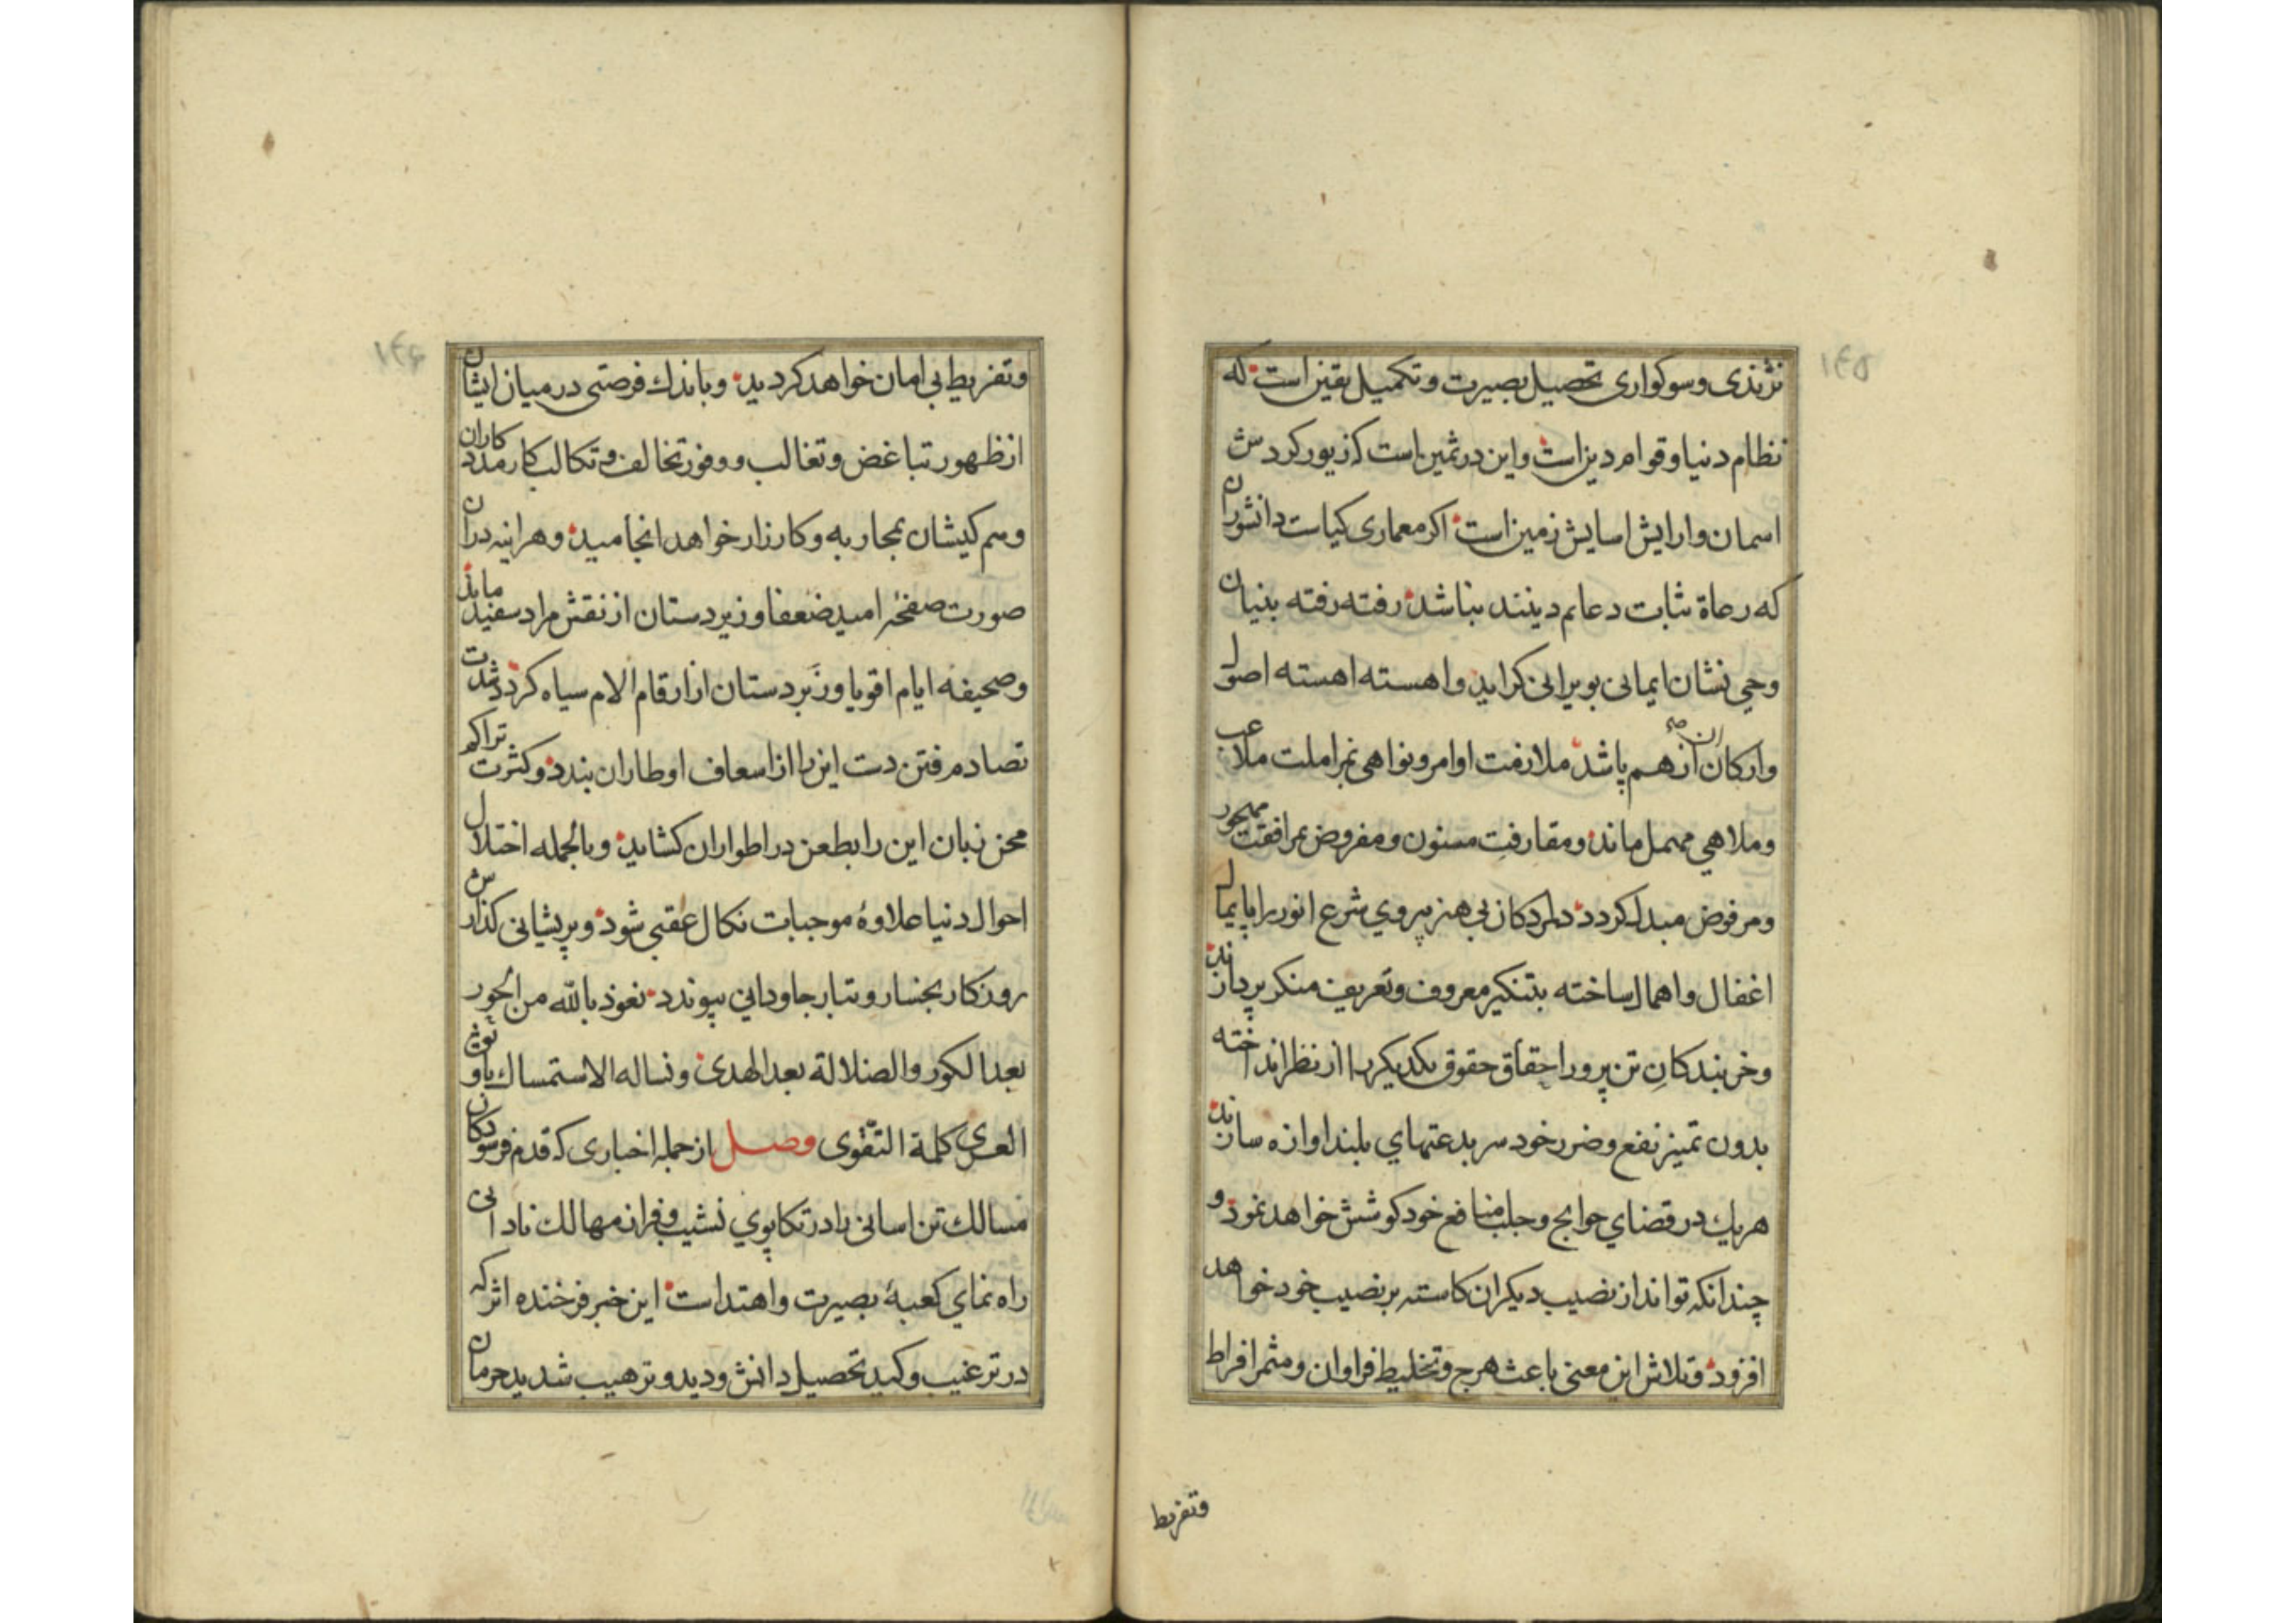 ۱۴۵
نژندی و سوکواری تحصیل بصیرت و تکمیل یقین است که
نظام دنیا و قوام دین است واین در ثمین است که زیور کردش
اسمان وارایش اسایش زمین است اکر معماری کیاست دانشوران
که رعاة ثبات دعایم دینند بناشد رفته رفته بنیان
وحی نشان ایمانی بویرانی کراید واهسته اهسته اصول
وارکان ان ازهم پاشد ملازمت اوامر ونواهی بمزاملت ملاعب
وملاهی مهمل ماند ومقارفت مسنون ومفروض بمرافقت مهجور
ومرفوض مبدل کردد دلمردکان بی هنر پیروی شرع انور را پایمال
اغفال واهمال ساخته بتنکیر معروف وتعریف منکر پردازند
وخربندکان تن پرور احقاق حقوق یکدیکر را از نظر انداخته
بدون تمییز نفع وضرر خود سر بدعتهای بلند اوازه سازند
هریك در قضای حوایج وجلب منافع خود کوشش خواهد نمود و
چندانکه تواند از نصیب دیکران کاسته بر نصیب خود خواهد
افزود وتلاش این معنی باعث هرج وتخلیط فراوان ومثمر افراط
وتفریط
۱۴۶
وتفریط بی امان خواهد کردید وباندك فرصتی در میان ایشان
از ظهور تباغض وتغالب ووفور تخالف وتکالب کار مددکاران
وهم کیشان بمحاربه وکارزار خواهد انجامید وهراینه دران
صورت صفحه امید ضعفا وزیردستان از نقش مراد سفید ماند
وصحیفه ایام اقویا وزبردستان از ارقام الام سیاه کردد شدت
تصادم فتن دست این را از اسعاف اوطار ان بندد وکثرت تراکم
محن زبان این را بطعن در اطوار ان کشاید وبالجمله اختلال
احوال دنیا علاوهٔ موجبات نکال عقبی شود وپریشانی کذارش
روزکار بخسار وتبار جاودانی پیوندد نعوذ بالله من الحور
بعد الکور والضلالة بعد الهدی ونساله الاستمساك باوثق
العری کلمة التقوی وصل از جمله اخباری که قدم فرسودکان
مسالك تن اسانی را در تکاپوی نشیب وفراز مهالك نادانی
راه نمای کعبهٔ بصیرت واهتداست این خبر فرخنده اثر که
در ترغیب وکید تحصیل دانش ودید وترهیب شدید حرمان